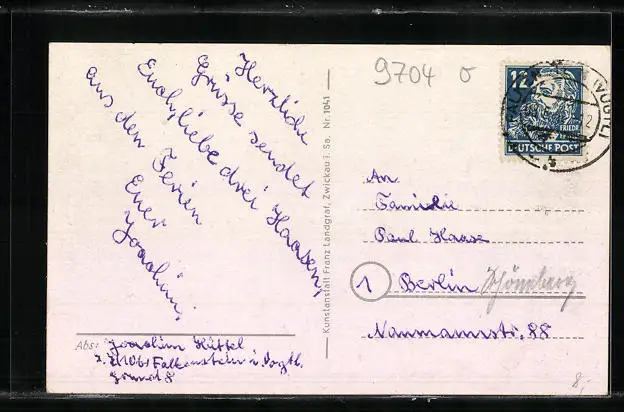 9704
Herzliche
Grüsse sendet
Euch, liebe drei Haasen,
aus den Ferien
Euer
Joachim.
Kunstanstalt Franz Landgraf, Zwickau i. Sa. Nr. 1041
12
FRIEDR
DEUTSCHE POST
(VOGTL)
An
Familie
Paul Haase
1 Berlin Schöneberg
Naumannstr. 88
Abs: Joachim Hüttel
Falkenstein i. Vogtl.
8,-